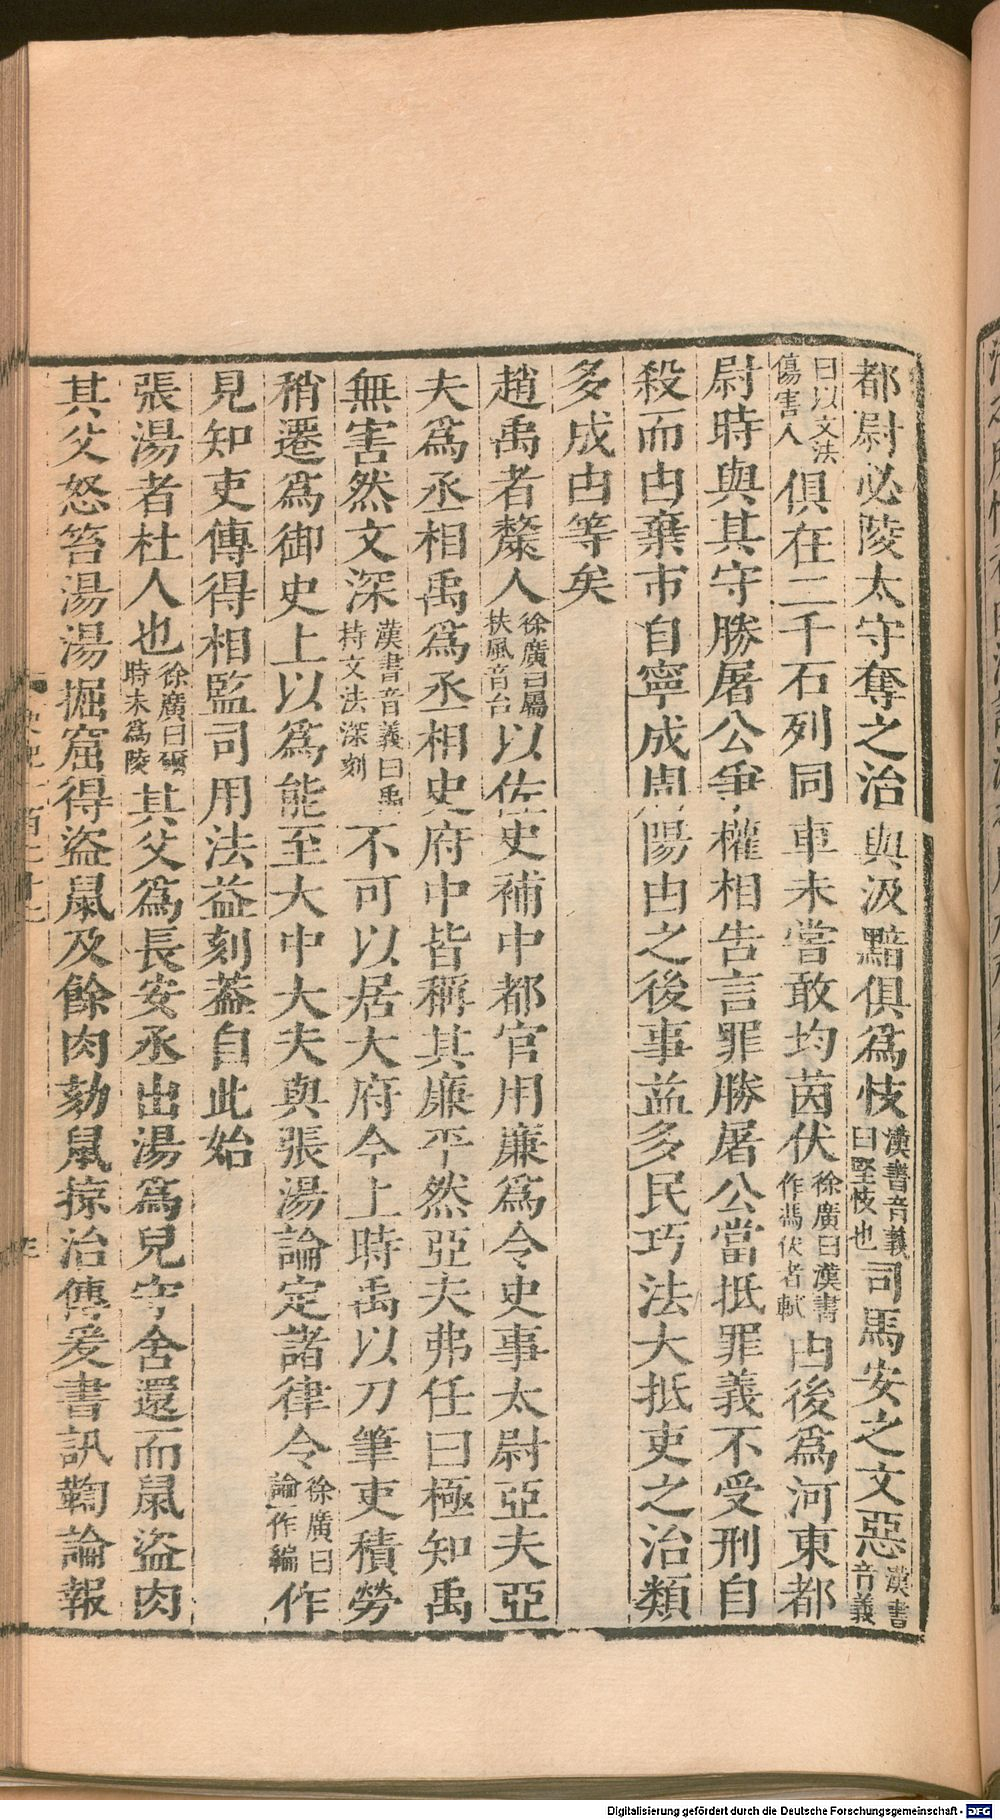 都尉必陵太守奪之治與汲黯俱爲忮漢書音義曰堅忮也司馬安之文惡漢書音義
曰以文法傷害人俱在二千石列同車未嘗敢均茵伏徐廣曰漢書作馮伏者軾由後爲河東都
尉時與其守勝屠公爭權相告言罪勝屠公當抵罪義不受刑自
殺而由棄市自寧成周陽由之後事益多民巧法大抵吏之治類
多成由等矣
趙禹者斄人徐廣曰屬扶風音台以佐史補中都官用廉爲令史事太尉亞夫亞
夫爲丞相禹爲丞相史府中皆稱其廉平然亞夫弗任曰極知禹
無害然文深漢書音義曰禹持文法深刻不可以居大府今上時禹以刀筆吏積勞
稍遷爲御史上以爲能至大中大夫與張湯論定諸律令徐廣曰論一作編作
見知吏傳得相監司用法益刻蓋自此始
張湯者杜人也徐廣曰爾時未爲陵其父爲長安丞出湯爲兒守舍還而鼠盜肉
其父怒笞湯湯掘窟得盜鼠及餘肉劾鼠掠治傳爰書訊鞫論報
Digitalisierung gefördert durch die Deutsche Forschungsgemeinschaft - DFG